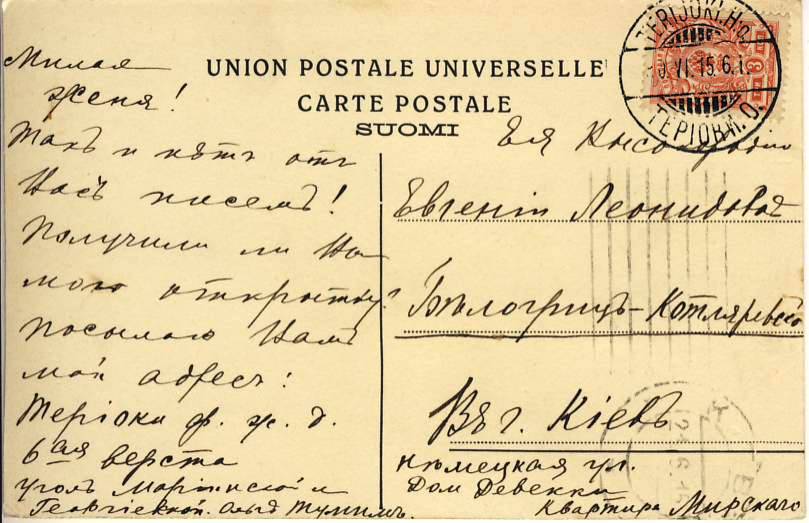 UNION POSTALE UNIVERSELLE
CARTE POSTALE
SUOMI
TERIJOKI. H.O.
15. 6. 1.
Милая
Женя!
Такъ и нѣтъ отъ
Васъ писемъ!
Получили ли Вы
мою открытку?
Посылаю Вамъ
мой адресъ:
Теріоки ф. ж. д.
6ая верста
уголъ Маріинской и
Георгіевской.
Ея Высокородію
Евгеніи Леонидовнѣ
Бѣлогрицъ-Котляревской
Въ г. Кіевъ
Нѣмецкая ул.
Дом
Квартира Мирскаго